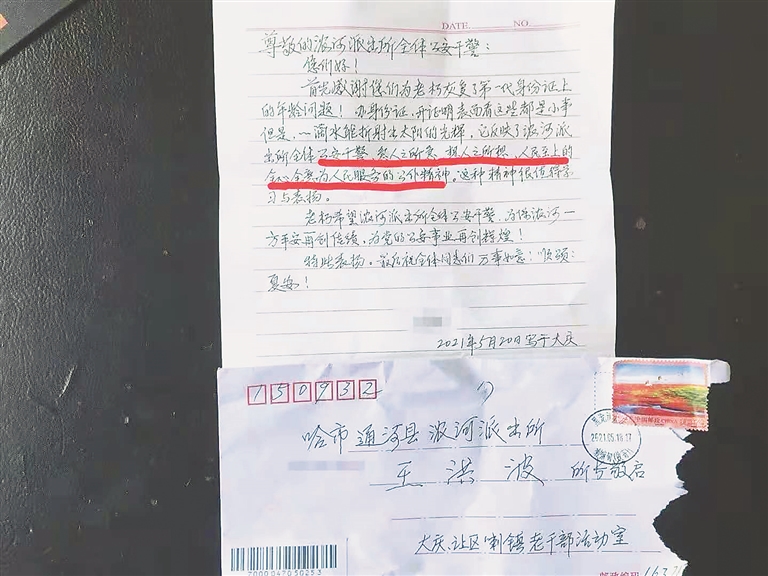 DATE. NO.
尊敬的浓河派出所全体公安干警：
您们好！
首先感谢你们为老朽恢复了第一代身份证上
的年龄问题！办身份证、开证明表面看这些都是小事
但是，一滴水能折射出太阳的光辉，它反映了浓河派
出所全体公安干警，急人之所急，想人之所想，人民至上的
全心全意为人民服务的公仆精神。这种精神很值得学
习与表扬。
老朽希望浓河派出所全体公安干警，为保浓河一
方平安再创佳绩，为党的公安事业再创辉煌！
特此表扬。最后祝全体同志们万事如意！顺颂：
夏安！
2021年5月20日写于大庆
150932
中国邮政 CHINA
2021.05.18.17
哈市通河县浓河派出所
王洪波 所长敬启
大庆、让区喇镇老干部活动室
邮政编码
7000047050253